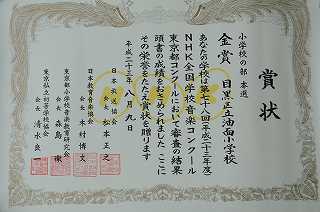 賞状
小学校の部 本選
金賞 目黒区立油面小学校
あなたの学校は第七十八回(平成二十三年度)
NHK全国学校音楽コンクール
東京都コンクールにおいて審査の結果
頭書の成績をおさめられました ここに
その栄誉をたたえ賞状を贈ります
平成二十三年八月九日
日本放送協会
会長 松本正之
日本教育音楽協会
会長 木村博文
東京都小学校音楽教育研究会
会長 森島
東京私立初等学校協会
会長 清水良一